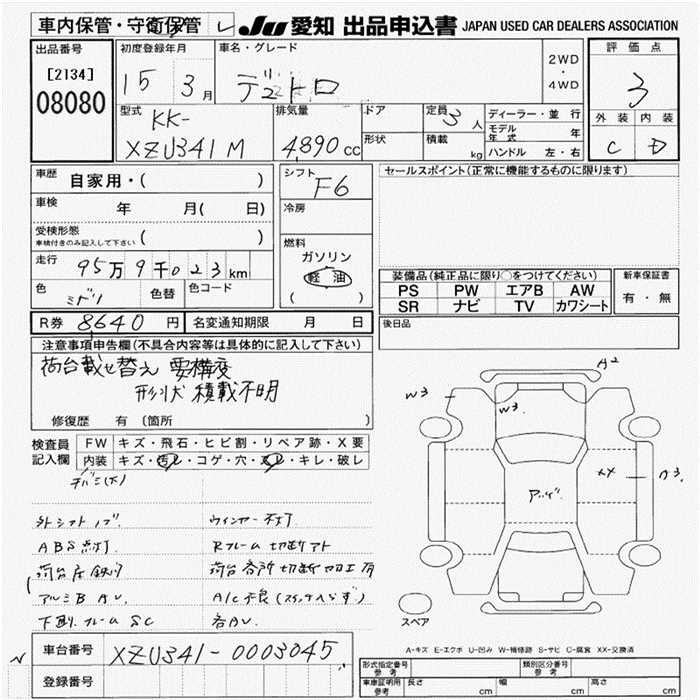 車内保管・守衛保管 レ JU 愛知 出品申込書 JAPAN USED CAR DEALERS ASSOCIATION
出品番号
[2134]
08080
初度登録年月
15 3月
車名・グレード
デュトロ
2WD
・
4WD
評価点
3
外装 内装
C D
型式
KK-
XZU341M
排気量
4890cc
ドア
形状
定員 3人
積載 kg
ディーラー・並行
モデル年式 年
ハンドル 左・右
車歴 自家用・( )
車検 年 月( 日)
受検形態
車検付きのみ記入して下さい ( )
走行 95万9千023km
色 ミドリ 色替 色コード
シフト
F6
冷房
燃料
ガソリン
軽油
( )
セールスポイント(正常に機能するものに限ります)
装備品(純正品に限り○をつけてください)
PS PW エアB AW
SR ナビ TV カワシート
新車保証書
有・無
R券 8640円 名変通知期限 月 日
後日品
注意事項申告欄(不具合内容等は具体的に記入して下さい)
荷台載せ替え 要構変
形状 積載不明
修復歴 有 〔箇所 〕
検査員
記入欄
FW キズ・飛石・ヒビ割・リペア跡・X要
内装 キズ・汚レ・コゲ・穴・スレ・キレ・破レ
外シフトノブ ウィンカー不灯
ABS点灯 Rフレーム切断アト
荷台床鉄 荷台各所切断加工有
アルミB AU A/C不良(スイッチ入らず)
下廻フレームSC 各AU
A2
W3
W3
XX
アゲ
スペア
A-キズ E-エクボ U-凹み W-補修跡 S-サビ C-腐食 XX-交換済
車台番号 XZU341-0003045
登録番号
形式指定番号
参考
類別区分番号
参考
車庫証明用
参考
長さ cm 幅 cm 高さ cm